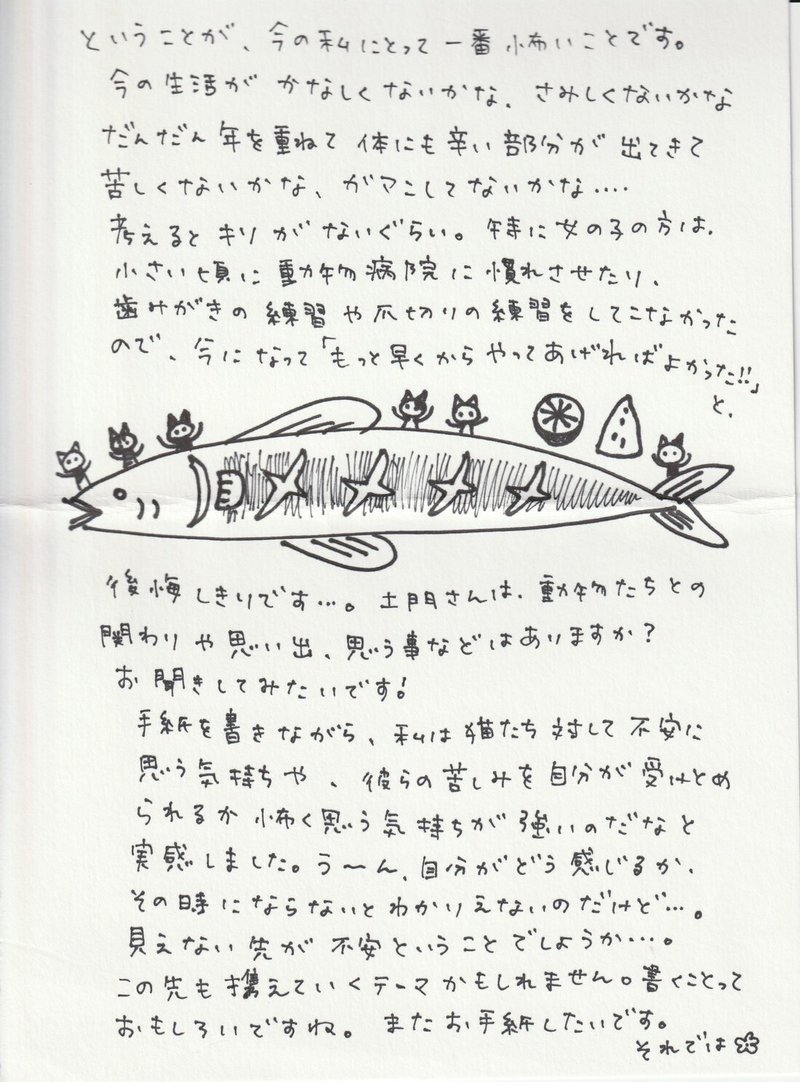 ということが、今の私にとって一番怖いことです。
今の生活がかなしくないかな、さみしくないかな
だんだん年を重ねて体にも辛い部分が出てきて
苦しくないかな、ガマンしてないかな‥‥
考えるとキリがないぐらい。特に女の子の方は、
小さい頃に動物病院に慣れさせたり、
歯みがきの練習や爪切りの練習をしてこなかった
ので、今になって「もっと早くからやってあげればよかった!!」
と、
後悔しきりです…。土門さんは、動物たちとの
関わりや思い出、思う事などはありますか?
お聞きしてみたいです!
手紙を書きながら、私は猫たち対して不安に
思う気持ちや、彼らの苦しみを自分が受けとめ
られるか怖く思う気持ちが強いのだなと
実感しました。う〜ん、自分がどう感じるか、
その時にならないとわかりえないのだけど…。
見えない先が不安ということでしょうか…。
この先も携えていくテーマかもしれません。書くことって
おもしろいですね。またお手紙したいです。
それでは